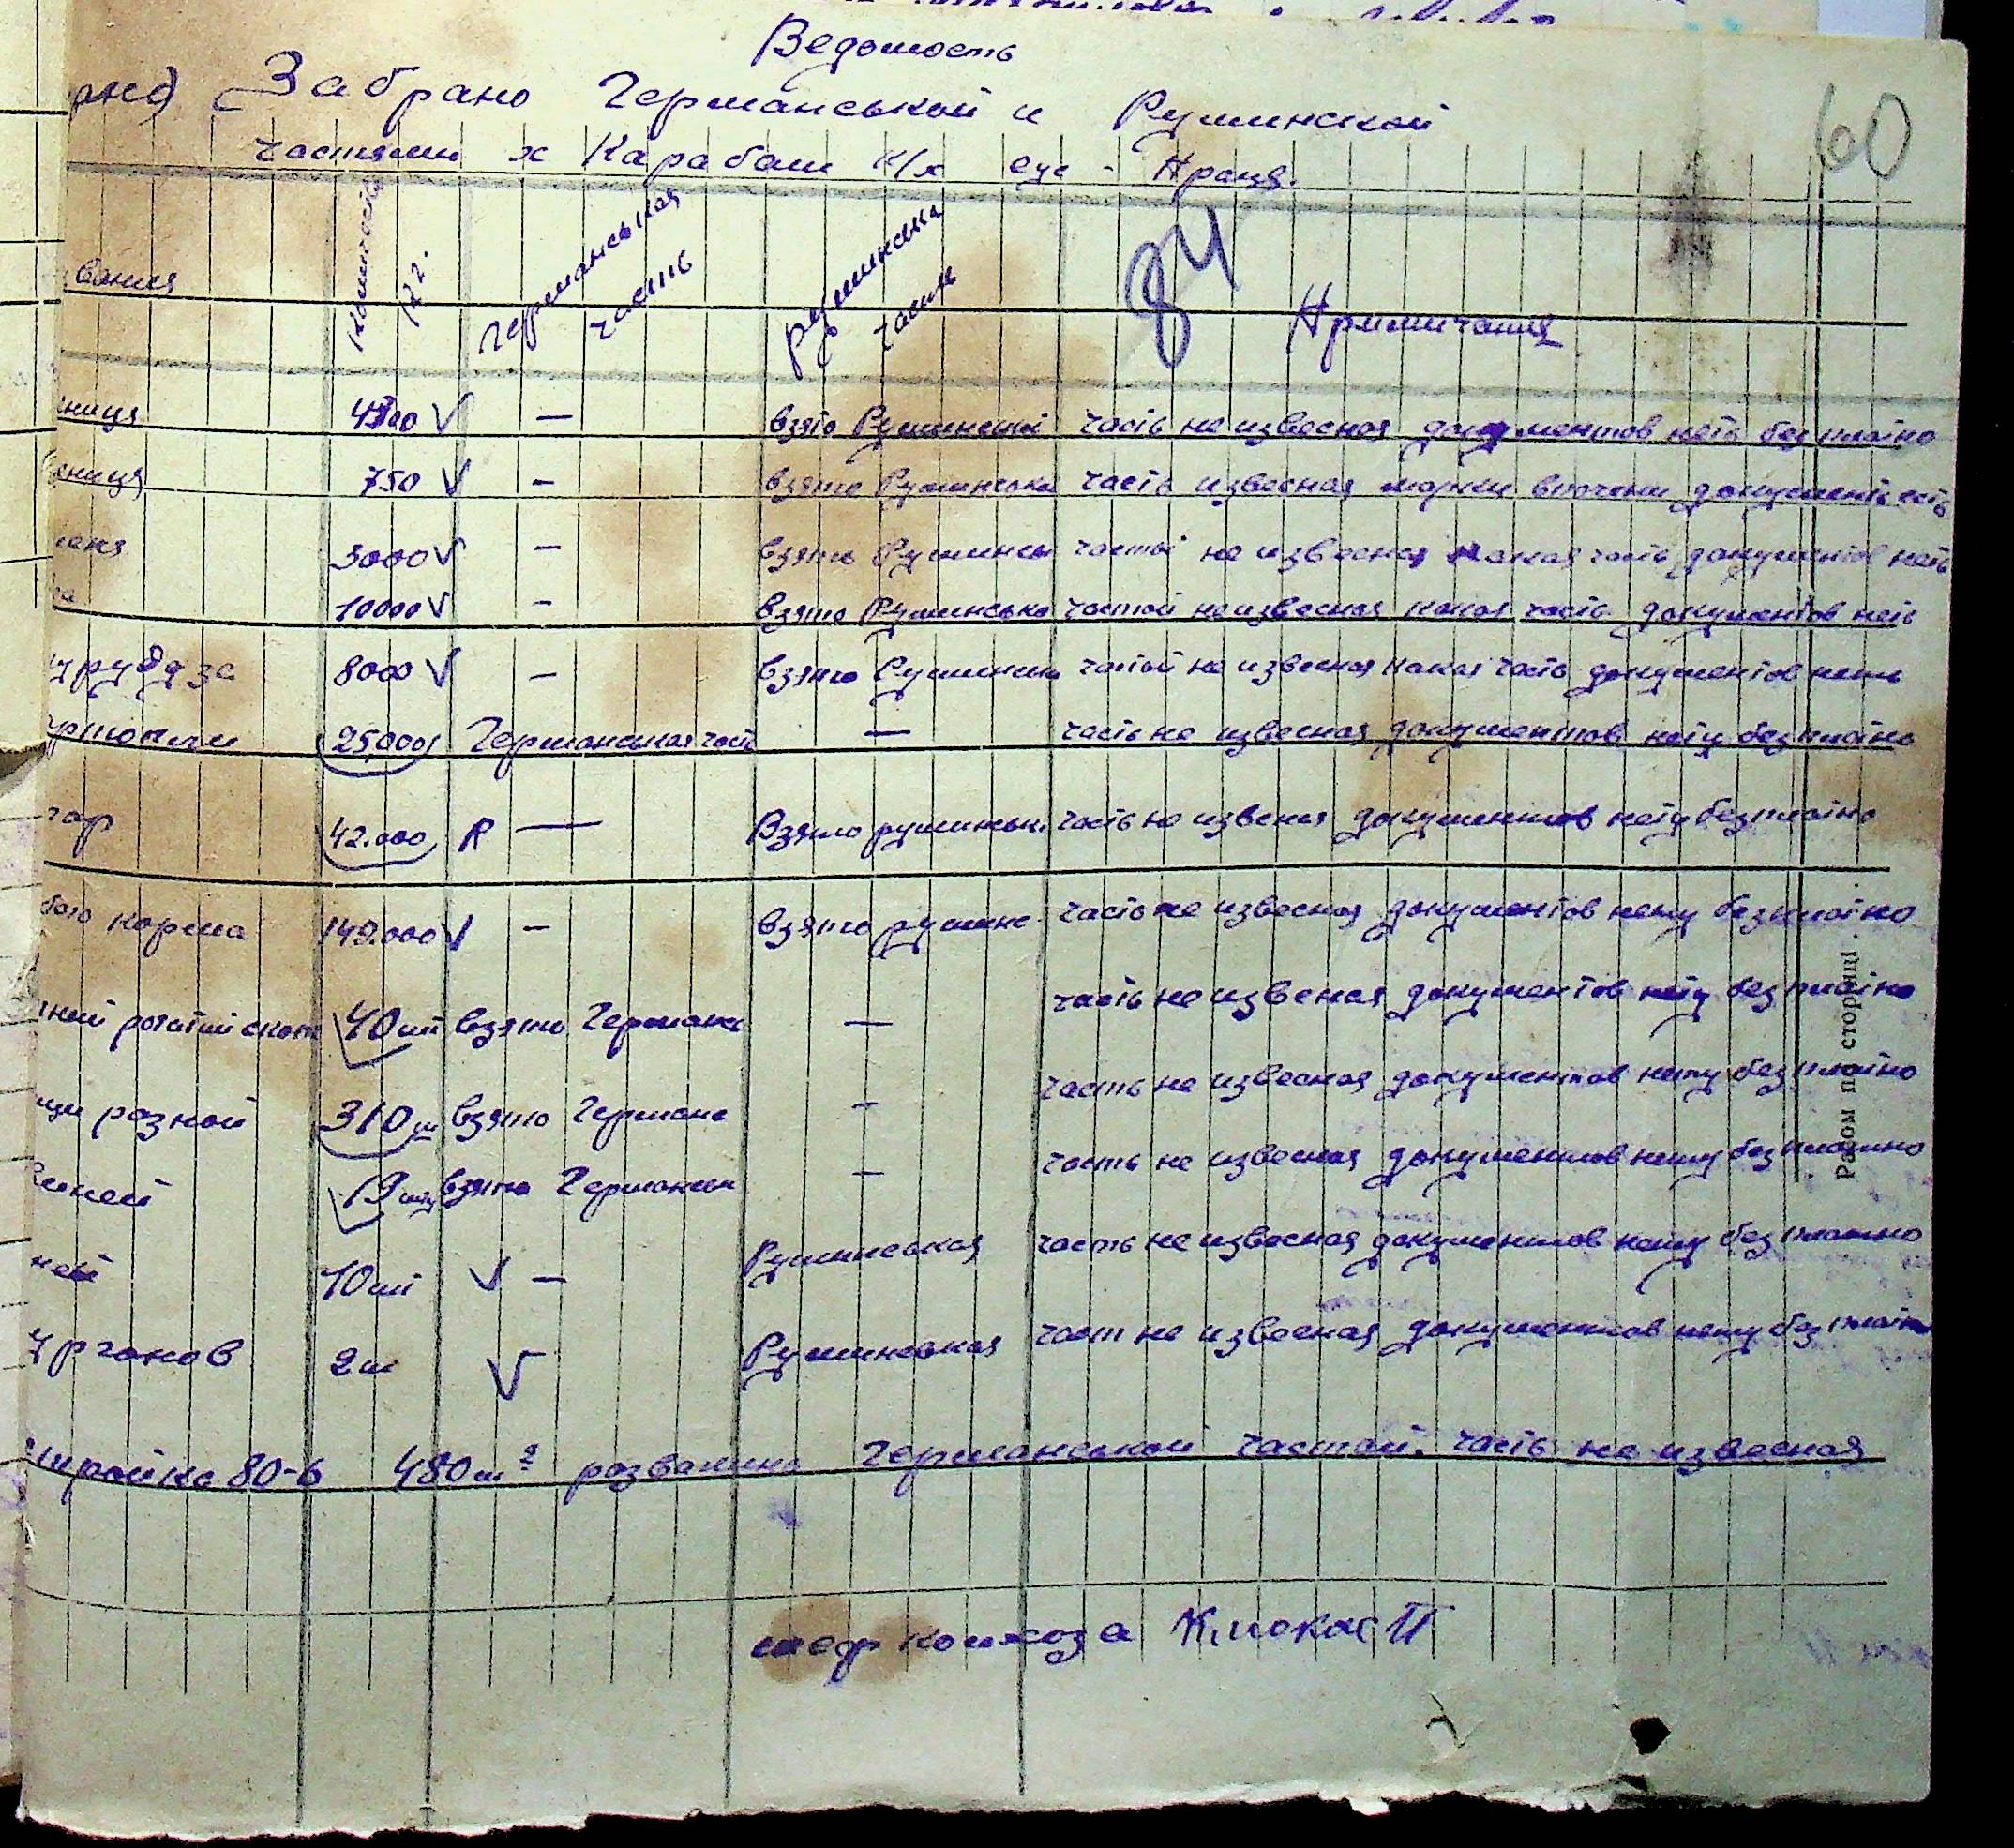 Ведомость
Забрано Германськой и Руминской
частями х Карабаш к/х
60
вания
Количество
кг.
германськая
часть
румински
часть
84
Примичания
ниця 4500 V — взято Руминської часть не извесная документов неть безплатно
ениця 750 V — взято Руминська часть извесная документь есть
3000 V — взято Руминськ частьі не извесная какая часть документов неть
10000 V — взято Руминсько частей неизвесная какая часть документов неть
курудза 8000 V — взято Руминськ частей не извесная какая часть документов неть
25,000 Германськая часть — часть не извесная документов нету безплатно
42.000 R — Взято руминськ. часть не извесная документов нету безплатно
бого корма 149.000 V — взято руминс часть не извесная документов нету безплатно
ний рогатий скот 40 шт взято Германс — часть не извесная документов нету безплатно
ци разной 310 шт взято Германс — часть не извесная документов нету безплатно
19 взято Германськ — часть не извесная документов нету безплатно
ней 10 шт V — Руминськая часть не извесная документов нету безплатно
2 ш V Руминськая част не извесная документов нету безплатно
480 м² розвалина Германськой частей. часть не извесная
колхоза
Разом по сторінці